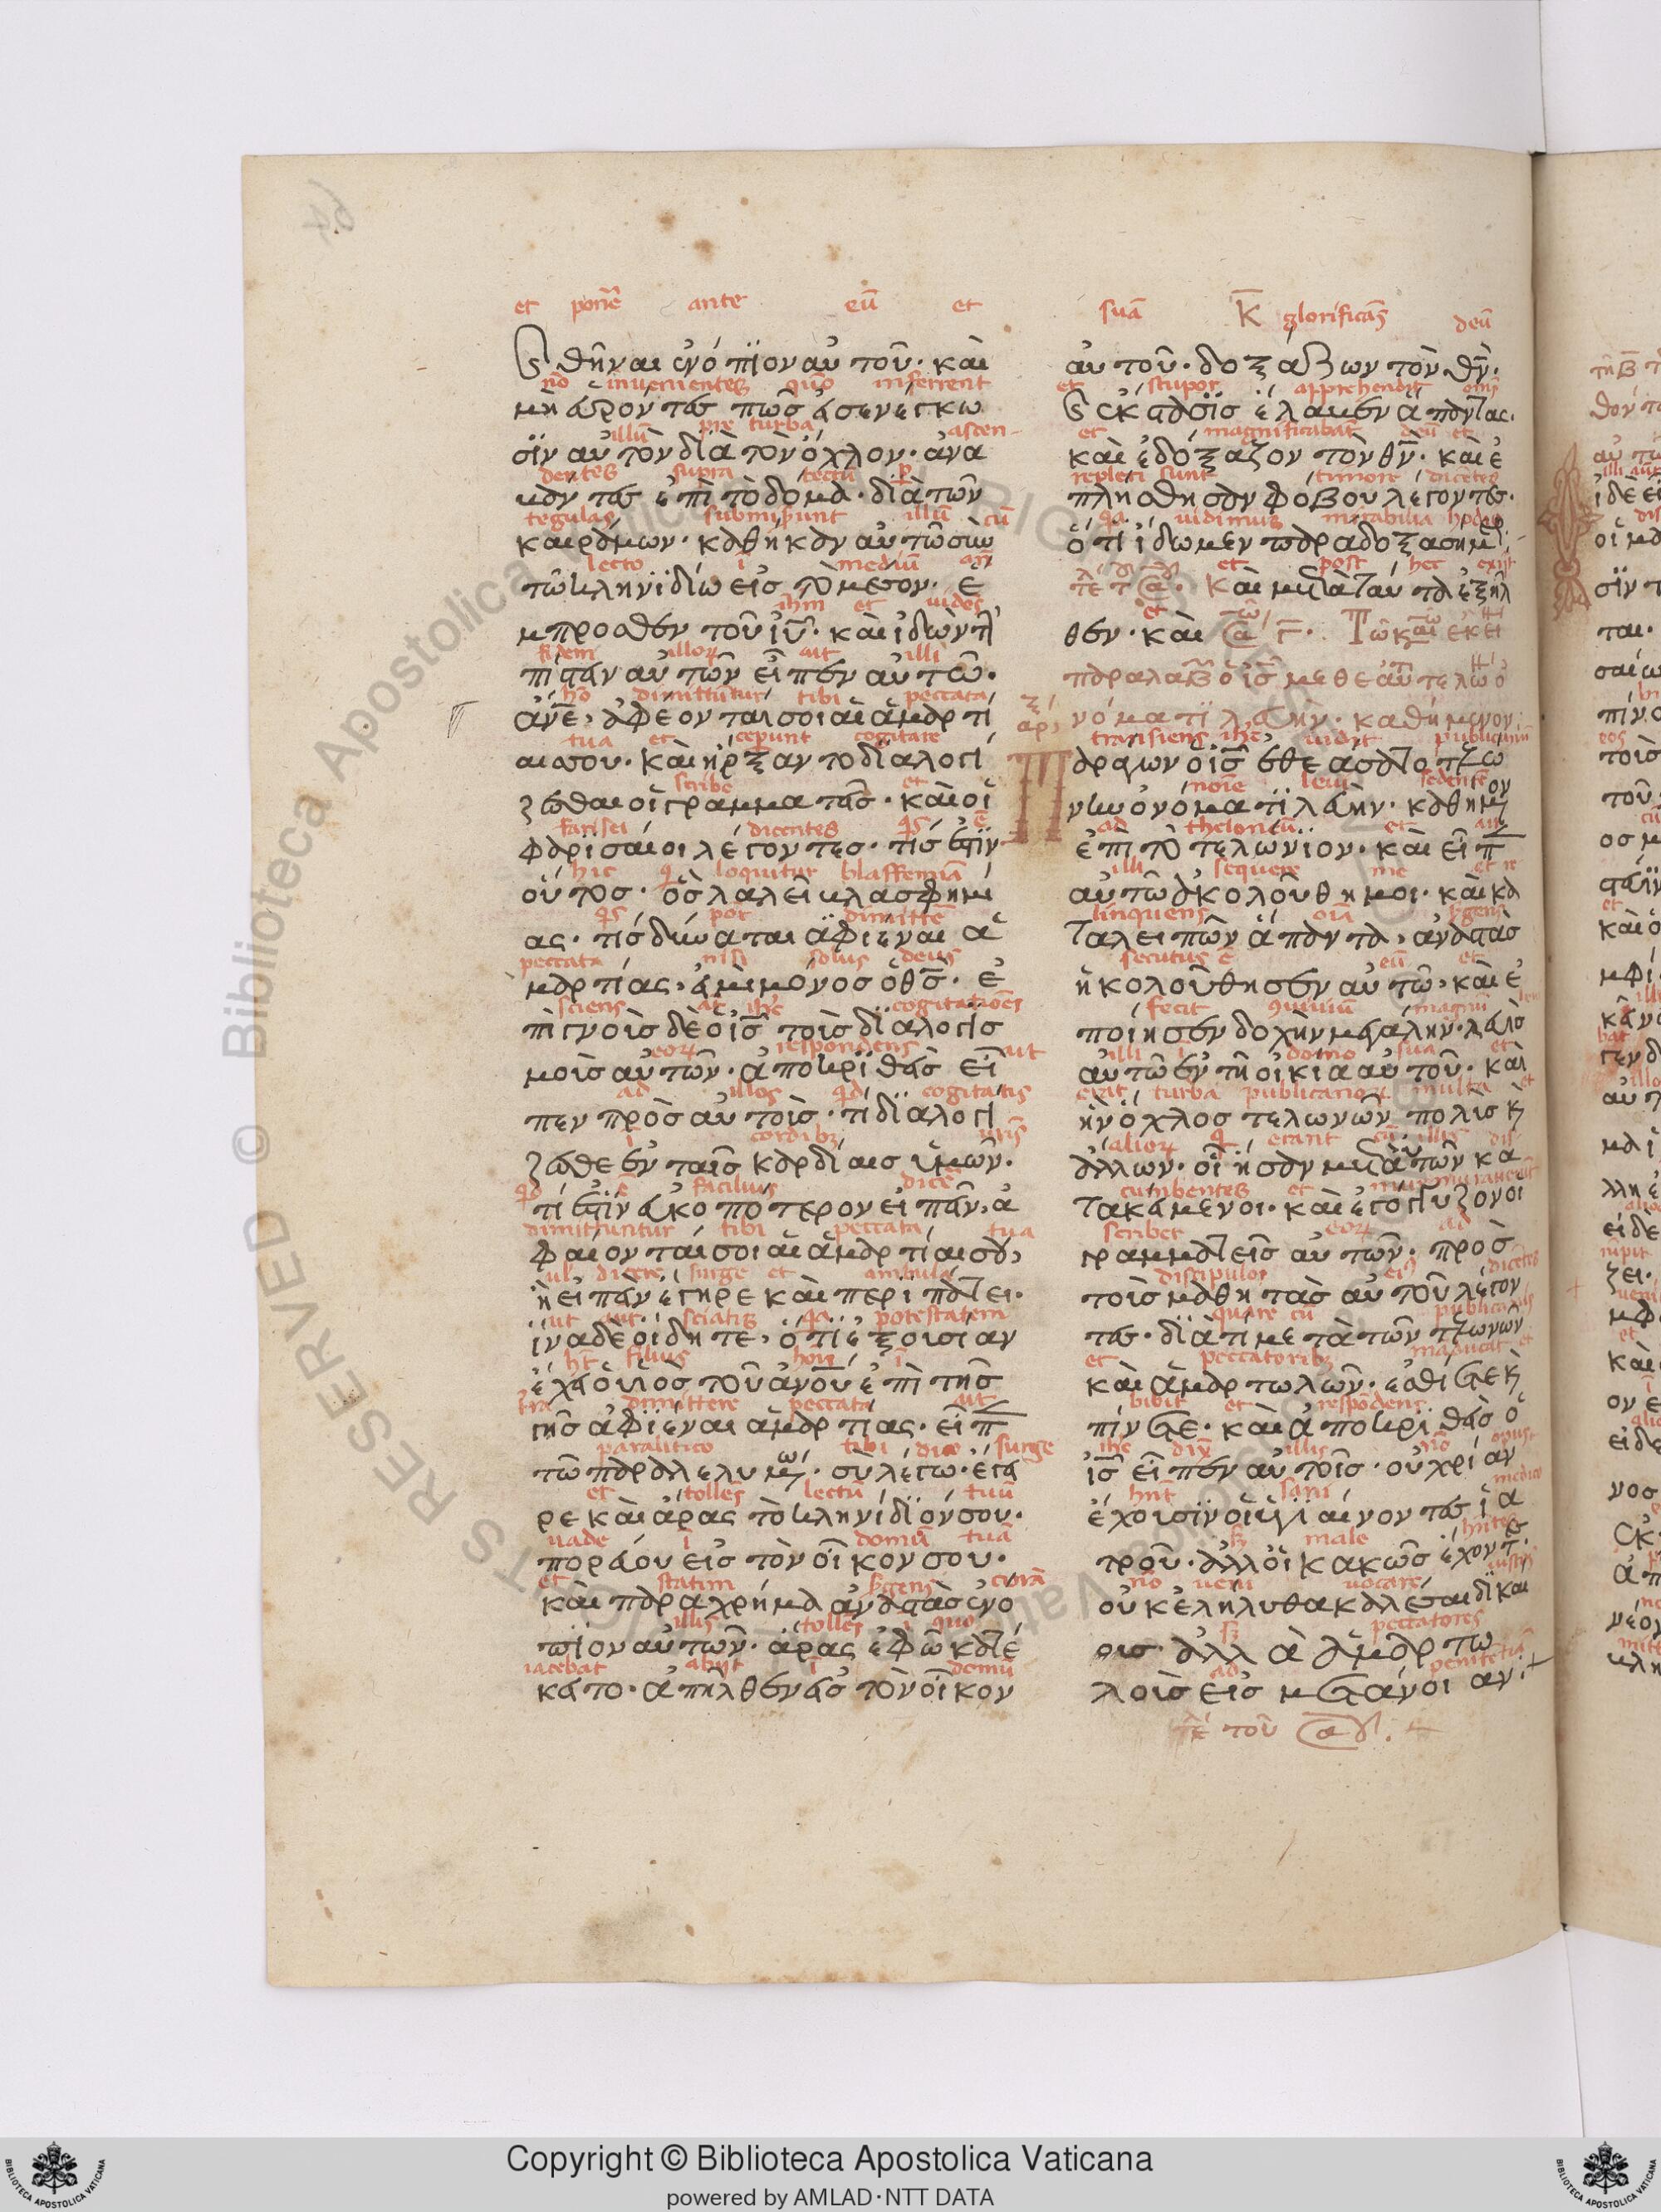 et ponē ante eū et
θῆναι ἐνόπϊον αὐτοῦ· καὶ
nō invenientes quō inferrent
μὴ εὑρόντες πῶς εἰσενέγκω
illū pre turba ascen-
σϊν αὐτὸν δϊὰ τὸν ὄχλον· ἀνα
dentes supra tectū p
βάντες ἐπὶ τὸ δόμα· διὰ τῶν
tegulas submiserunt illū cū
κεράμων· καθήκαν αὐτῶ σὺν
lecto ī mediū añ
τῶ κληνϊδίω εἰς τὸ μέσον· ἔ
ihm et videns
μπροσθεν τοῦ ἰῦ· καὶ ἰδὼν τὴ
fidem illoꝝ ait illi
πίσταν αὐτῶν εἶπεν αὐτῶ·
hō dimittūtur tibi peccata
ἄνε, ἀφέονταισοι αἱ ἁμαρτί
tua et ceperunt cogitare
αισου· καὶ ἤρξαντο δϊαλογί
scribe et
ζεσθαι οἱ γραμματεῖς· καὶ οἱ
farisei dicentes qs ē
φαρισαίοι λέγοντες· τίς ἐστϊν
hic q loquitur blassfemiā
οὗτος· ὃς λαλεῖ βλασφημί
qs pot dimittē
ας· τίς δύναται ἀφϊέναι ἁ
peccata nisi solus deus
μαρτίας, εἰ μὴ μόνος ὁ θς· ἐ
sciens at ihc cogitatiōes
πιγνοὺς δὲ ὁ ἰς τοὺς δϊαλογις
eoꝝ respondens ait
μοὺς αὐτῶν· ἀποκρϊθεὶς εἶ
ad illos qd cogitatis
πεν πρὸς αὐτοὺς· τί δϊαλογί
ī cordibꝫ vris
ζεσθε ἐν ταῖς καρδίαις ὑμῶν·
qd ē facilius dicē
τί ἐστϊν εὐκοπότερον εἰπεῖν, ἀ
dimittuntur tibi peccata tua
φαίονταί σοι αἱ ἁμαρτίαι σου,
ul dicere surge et ambula
ἢ εἰπεῖν ἔγηρε καὶ περιπάτει·
ut aut sciatis qa potestatem
ἵνα δὲ οἴδητε, ὅτϊ ἐξουσίαν
ht filius hoīs ī
ἔχει ὁ υἱὸς τοῦ ἀνου ἐπὶ τῆς
tra dimittere peccata ait
γῆς ἀφϊέναι ἁμαρτίας· εἶπ
paralitico tibi dico surge
τῶ παραλελυμω· σὺ λέγω· ἔγει
et tollēs lectū tuū
ρε καὶ ἄρας τὸ κληνίδϊόν σου·
vade ī domū tuā
πορεύου εἰς τὸν οἶκον σου·
et statim surgens corā
καὶ παραχρήμα ἀναστὰς ἐνό
illis tollēs ī quo
πϊον αὐτῶν· ἄρας ἐφ ὧ κατέ
iacebat abiit ī domū
κειτο· ἀπῆλθεν εἰς τὸν οἶκον
suā k glorificās deū
αὐτοῦ· δοξάζων τὸν θν·
et stupor apprehendit ōnes
ἔκστασϊς ἔλαβεν ἅπαντας·
et magnificabāt deū et
καὶ ἐδόξαζον τὸν θν· καὶ ἐ
repleti sunt timore dicētes
πλήσθησαν φόβου λέγοντες·
qa vidimus mirabilia hodie
ὅτι ἴδωμεν παράδοξα σήμερ
et post hec exiit
Καὶ μετὰ ταύτα ἐξῆλ
et
θεν· καὶ
Τῶ καιρῶ ἐκεί
παραλαβ ὁ ἰς μεθεατ τελω ὀ
νόματϊ λευὴν· καθήμενον·
transiens ihc vidit publicanū
Παράγων ὁ ἰς ἐθεάσατο τελώ
noīe levi sedentē
νην ὀνόματϊ λευὴν· καθήμενον
ad theloneū et ait
ἐπὶ τὸ τελώνϊον· καὶ εἶπ
illi sequere me et re
αὐτῶ ἀκολούθη μοι· καὶ κα
linquens oīa surgens
ταλειπῶν ἅπαντα, ἀναστὰς
secutus ē eū et
ἠκολούθησεν αὐτῶ· καὶ ἐ
fecit ꝯviviū magnū levi
ποίησεν δοχὴν μεγάλην· λευὶς
illi ī domo sua et
αὐτῶ ἐν τῆ οἰκια αὐτοῦ· καὶ
erat turba publicanoꝝ multa et
ἦν ὄχλος τελωνῶν πολὺς κ
alioꝝ q erant cū illis dis
ἄλλων· οἳ ἦσαν μετ᾽ αὐτῶν κα
cumbentes et murmuraverūt
τακείμενοι· καὶ ἐγόγγυζον οἱ
scribes eoꝝ ad
γραμματεῖς αὐτῶν· πρὸς
discipulos eius dicētes
τοὺς μαθητὰς αὐτοῦ λέγον
quare cū publicanis
τες· δϊὰτί μετὰ τῶν τελωνῶν
et peccatoribꝫ māducat et
καὶ ἁμαρτωλῶν· ἐσθίετε κ
bibit et respōdens
πίνετε· καὶ ἀποκρϊθεὶς ὁ
ihc dix illis nō opus
ἰς εἶπεν αὐτοῖς· οὐ χρίαν
hnt sani medico
ἔχουσϊν οἱ ὑγϊαίνοντες ἰα
sꝫ male hntes
τροῦ· ἀλλοἱ κακῶς ἔχοντες·
nō veni vocare iustos
οὐκ ἐλήλυθα καλέσαι δϊκαί
sꝫ peccatores
ους· ἀλλὰ ἁμαρτω
ad penitētiā
λοὺς εἰς μετάνοιαν·
τε τοῦ
Copyright © Biblioteca Apostolica Vaticana
powered by AMLAD·NTT DATA